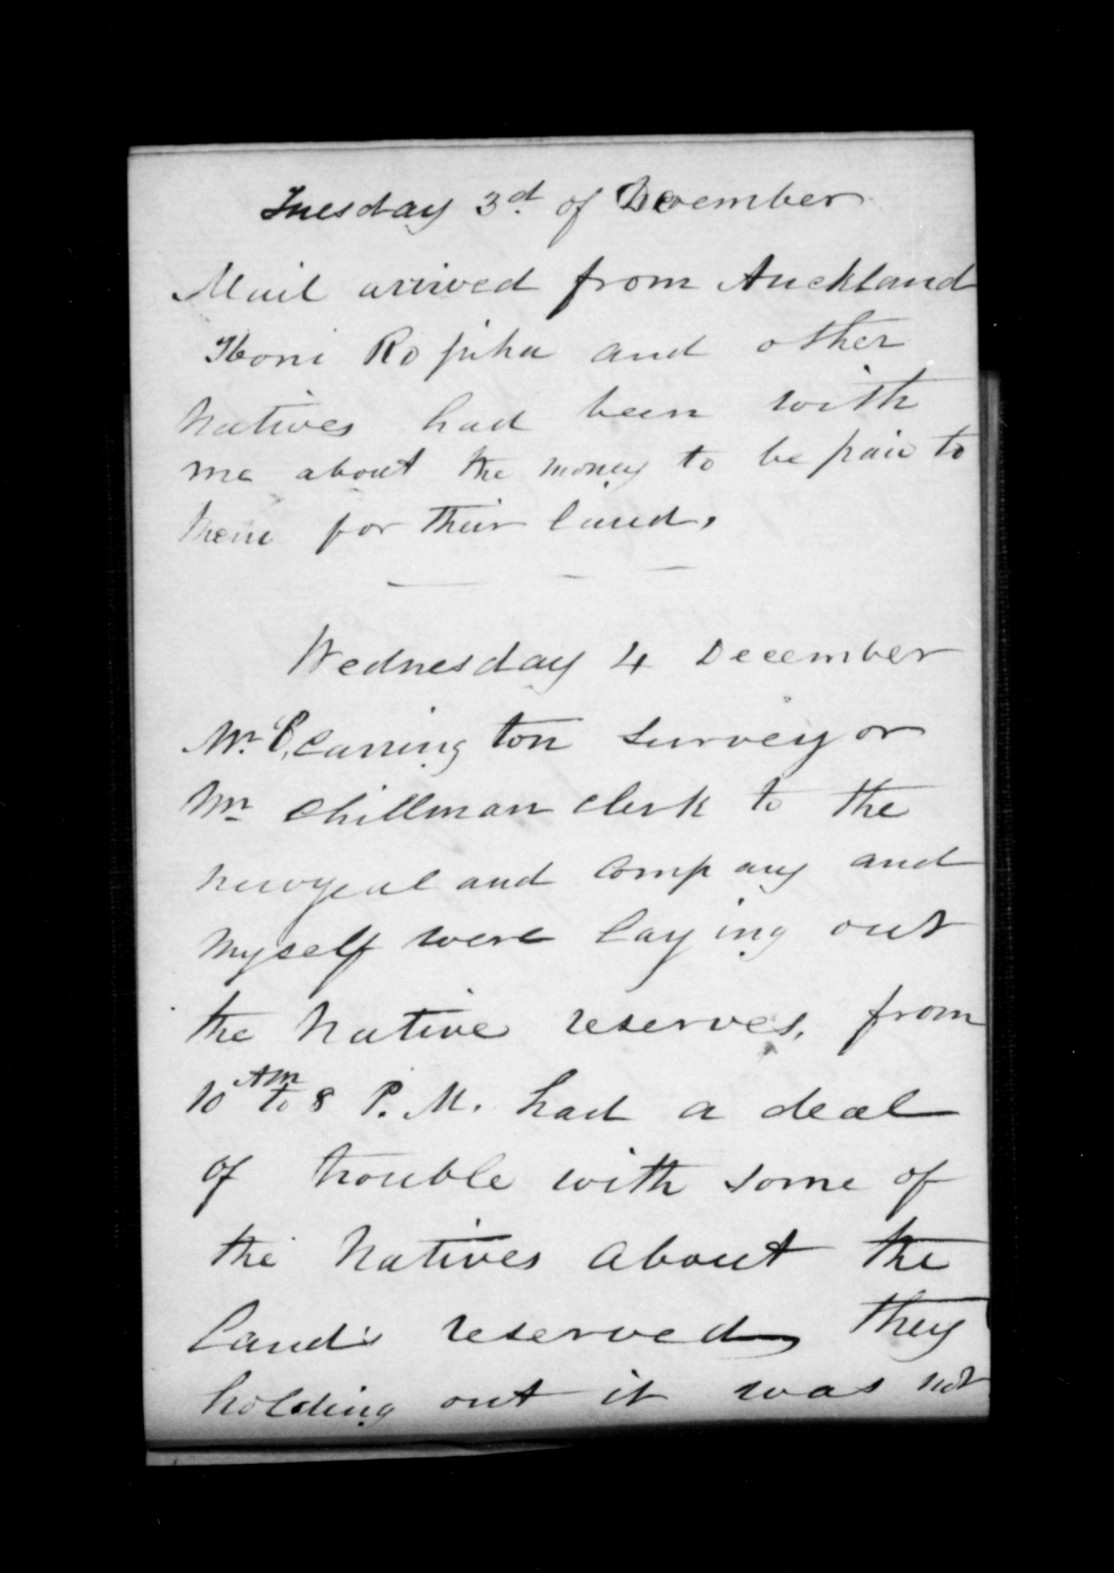 Tuesday 3d of December
Mail arrived from Auckland
Honi Ropiha and other
Natives had been with
me about the money to be paid to
them for their land.
Wednesday 4 December
Mr. Carrington Surveyor
Mr Chillman Clerk to the
Newzealand Company and
Myself were laying out
the Native reserves, from
10 AM to 8 P.M. had a deal
of trouble with some of
the Natives about the
Lands reserved, they
holding out it was not